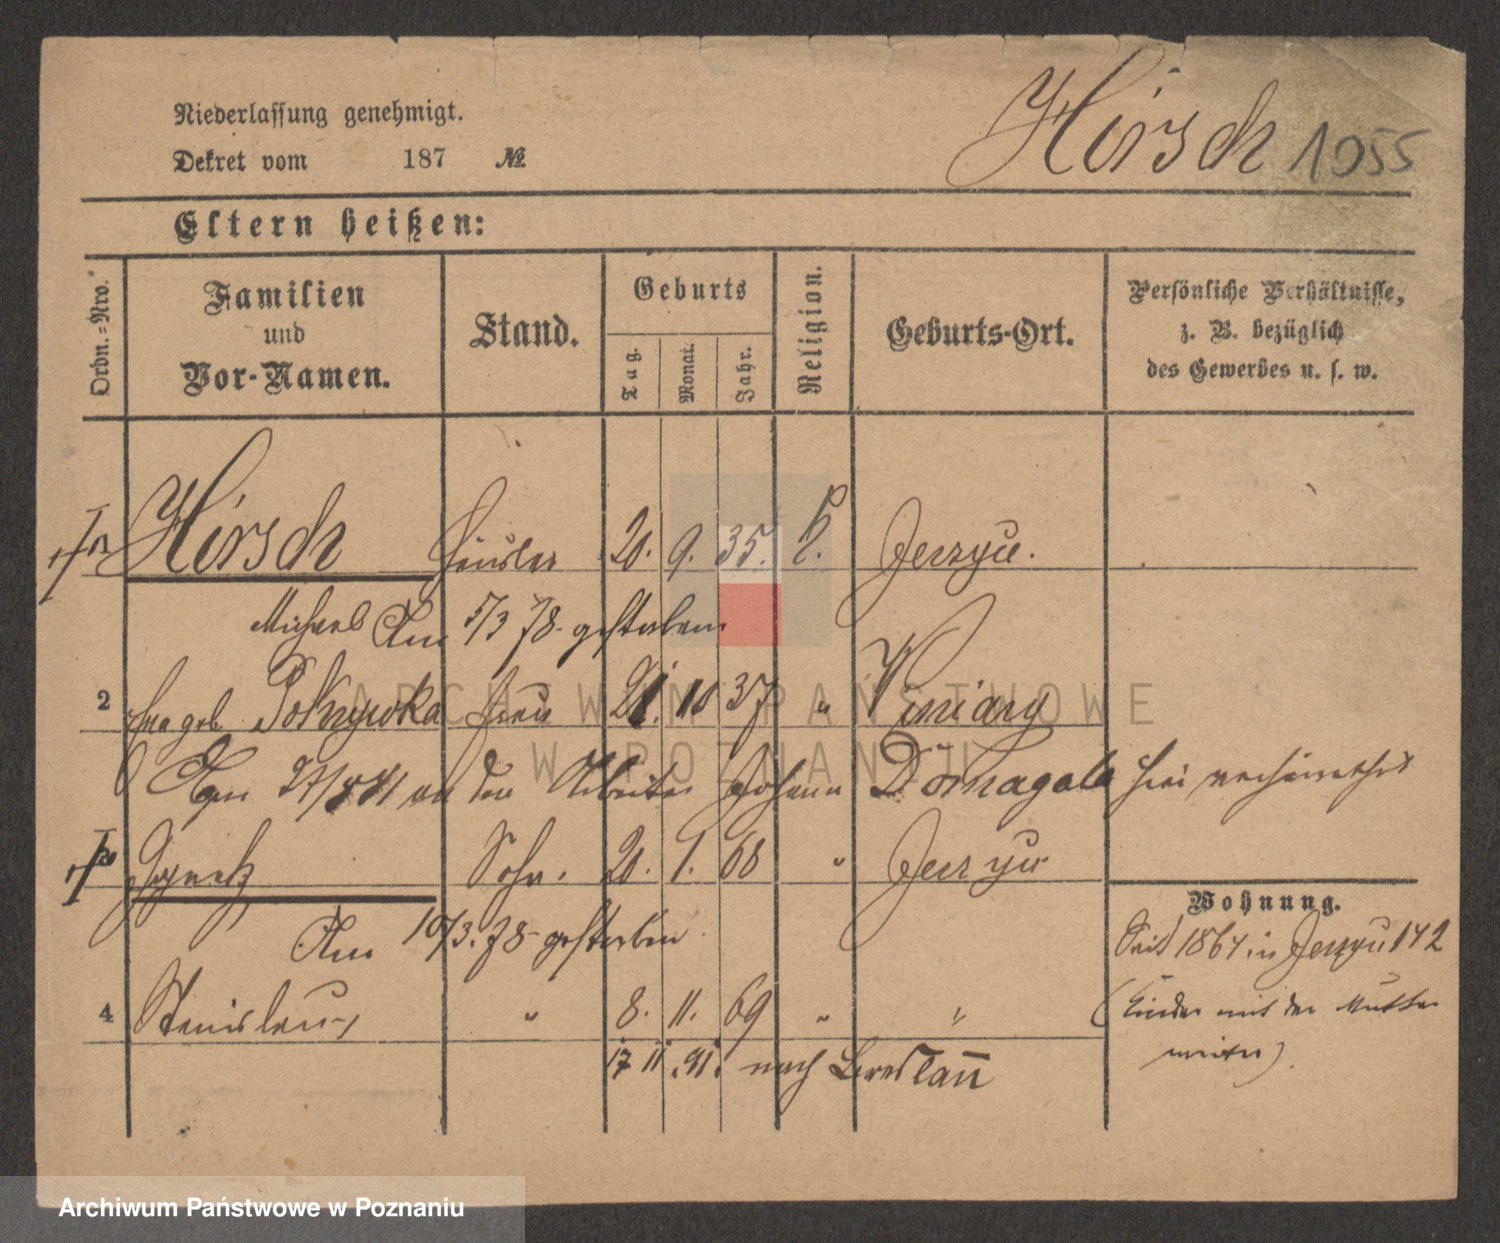 Niederlassung genehmigt.
Dekret vom 187 №
Hirsch 1055
Eltern heißen:
Ordn.-Nro.
Familien und Vor-Namen.
Stand.
Geburts
Tag. Monat. Jahr.
Religion.
Geburts-Ort.
Persönliche Verhältnisse,
z. B. bezüglich
des Gewerbes u. s. w.
Hirsch Häusler 20. 9. 35. k. Jerzyce.
Michael Am 5/3 78 gestorben
2 geb. Frau 10 37 " Winiary
Am an den Arbeiter Johann Domagala hier verheirathet
Ignatz Sohn. 20. 1. 68 " Jerzyce
Am 10/3. 78 gestorben
Wohnung.
Seit 1864 in Jerzyce 142
4 Stanislaus " 8. 11. 69 " "
(Kinder mit der Mutter
weiter)
17 11. 91. nach Breslau
ARCHIWUM PAŃSTWOWE
W POZNANIU
Archiwum Państwowe w Poznaniu